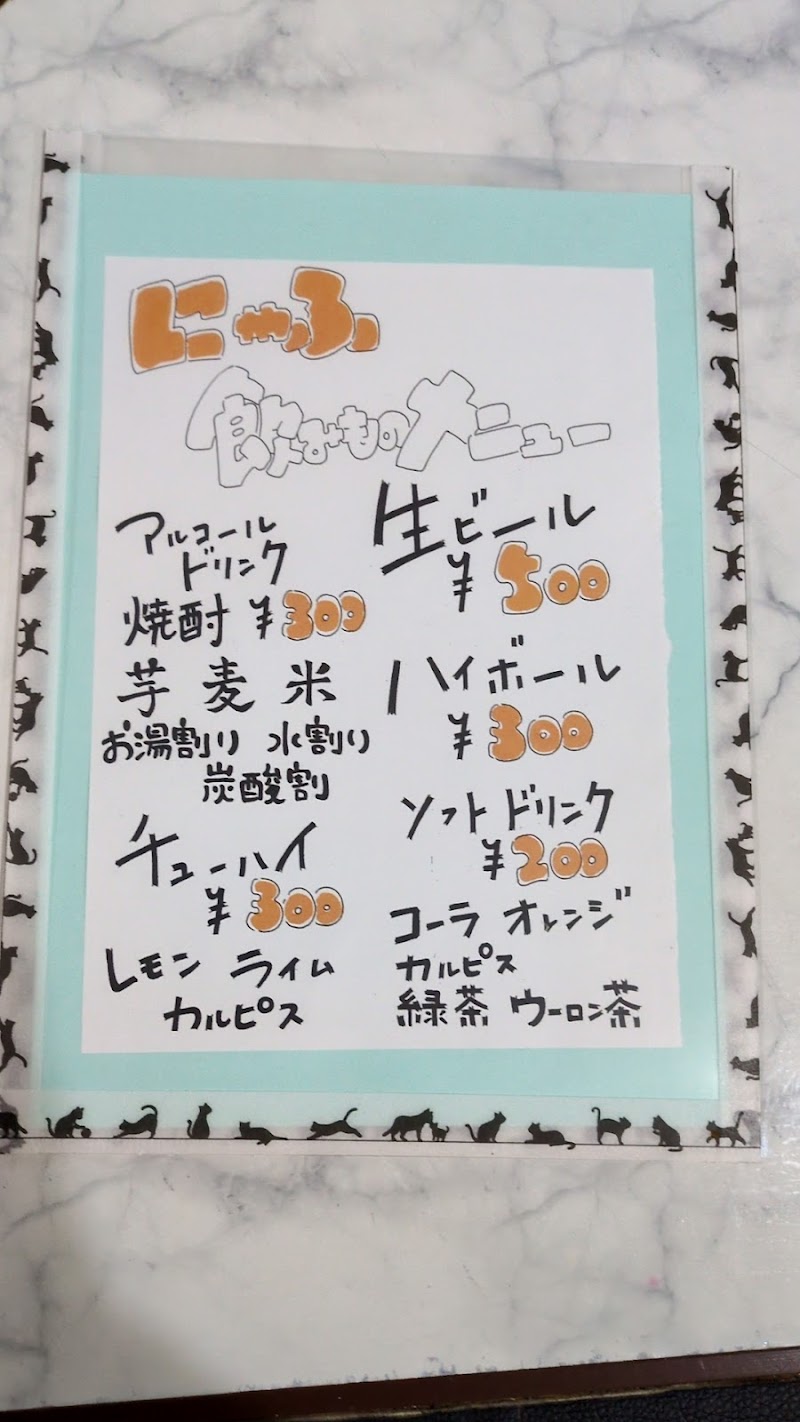 にゃっふぃ
飲みものメニュー
アルコール
ドリンク
焼酎 ¥300
芋 麦 米
お湯割り 水割り
炭酸割
チューハイ
¥300
レモン ライム
カルピス
生ビール
¥500
ハイボール
¥300
ソフトドリンク
¥200
コーラ オレンジ
カルピス
緑茶 ウーロン茶